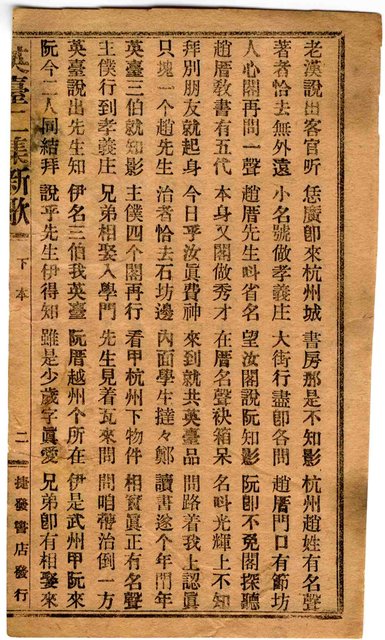 老漢說出客官听 恁廣卽來杭州城 書房那是不知影 杭州趙姓有名聲
著者恰去無外遠 小名號做孝義庄 大街行盡卽各問 趙厝門口有節坊
人心閣再問一聲 趙厝先生呌省名 望汝閣說阮知影 阮卽不免閣探聽
趙厝敎書有五代 本身又閣做秀才 在厝名聲袂箱呆 名呌光輝上不知
拜別朋友就起身 今日乎汝眞費神 來到就共英臺品 問路着我上認眞
只塊一个趙先生 治者恰去石坊邊 內面學生撻々鄭 讀書遂个年閂年
英臺三伯就知影 主僕四个閣再行 看甲杭州下物件 相賓眞正有名聲
主僕行到孝義庄 兄弟相娶入學門 先生見着瓦來問 問咱帶治倒一方
英臺說出先生知 伊名三伯我英臺 阮厝越州个所在 伊是武州甲阮來
阮今二人同結拜 說乎先生伊得知 雖是少歲字眞愛 兄弟卽有相娶來
英臺二集新歌 下本 二 捷發書店發行